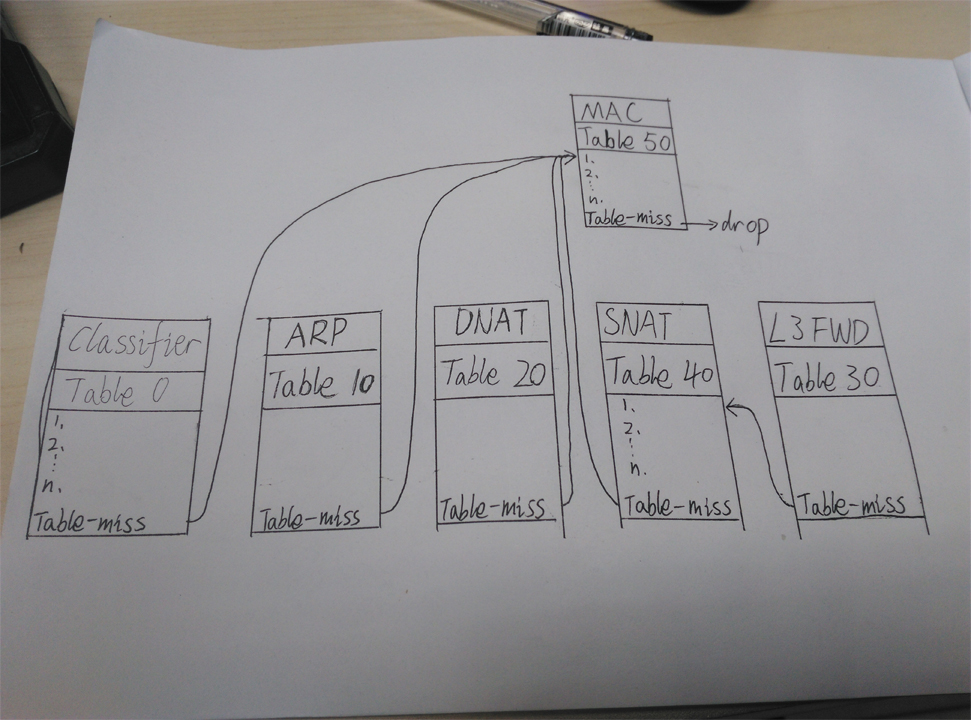 MAC
Table 50
1.
2.
⋮
n.
Table-miss
drop
Classifier
Table 0
1.
2.
⋮
n.
Table-miss
ARP
Table 10
Table-miss
DNAT
Table 20
Table-miss
SNAT
Table 40
1.
2.
⋮
n.
Table-miss
L3FWD
Table 30
Table-miss